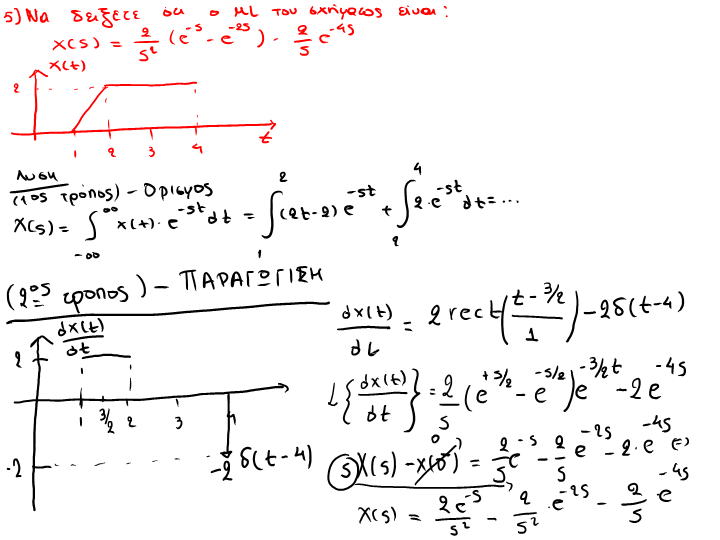 5) Να δείξετε ότι ο ML του σχήματος είναι:
X(s) = 2/s² (e^-s - e^-2s) - 2/s e^-4s
x(t)
2
1 2 3 4 t
Λύση
(1ος τρόπος) - Ορισμος
X(s) = ∫_-∞^∞ x(t) · e^-st dt = ∫_1^2 (2t-2) e^-st + ∫_2^4 2·e^-st dt = ...
(2ος τροπος) - ΠΑΡΑΓΩΓΙΣΗ
dx(t)/dt
2
1 3/2 2 3 4
-2
-2 δ(t-4)
dx(t)/dt = 2 rect((t-3/2)/1) - 2δ(t-4)
L{dx(t)/dt} = 2/s (e^+s/2 - e^-s/2) e^-3/2t - 2e^-4s
s X(s) - x(0^-) 0 = 2/s e^-s - 2/s e^-2s - 2·e^-4s (=)
X(s) = 2e^-s/s² - 2/s² · e^-2s - 2/s e^-4s